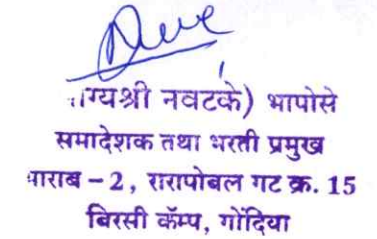 ग्यश्री नवटके) भापोसे
समादेशक तथा भरती प्रमुख
भाराब – 2, रारापोबल गट क्र. 15
बिरसी कॅम्प, गोंदिया